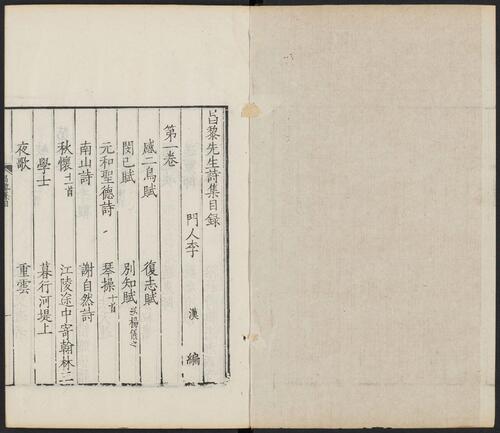 昌黎先生詩集目錄
門人李 漢 編
第一卷
感二鳥賦 復志賦
閔己賦 別知賦送楊儀之
元和聖德詩 琴操十首
南山詩 謝自然詩
秋懷十一首 江陵途中寄翰林三
學士 暮行河堤上
夜歌 重雲